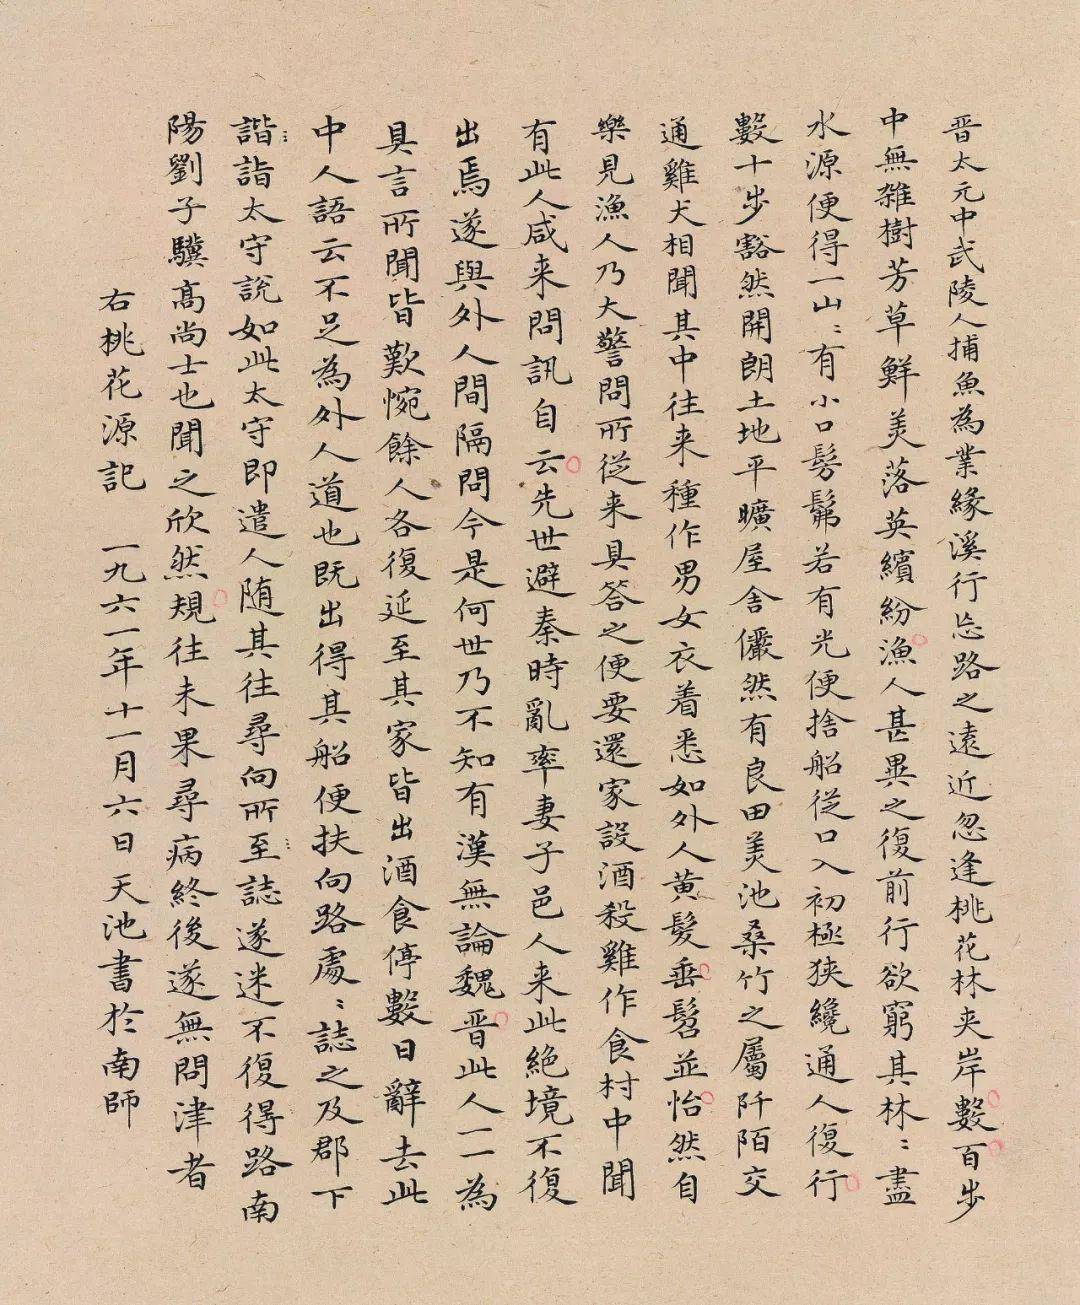 晋太元中武陵人捕魚為業緣溪行忘路之遠近忽逢桃花林夾岸數百步
中無雑樹芳草鮮美落英繽紛漁人甚異之復前行欲窮其林〻盡
水源便得一山〻有小口髣髴若有光便捨船從口入初極狹纔通人復行
數十步豁然開朗土地平曠屋舍儼然有良田美池桑竹之屬阡陌交
通雞犬相聞其中往来種作男女衣着悉如外人黄髮垂髫並怡然自
樂見漁人乃大警問所從来具答之便要還家設酒殺雞作食村中聞
有此人咸来問訊自云先世避秦時亂率妻子邑人来此絶境不復
出焉遂與外人間隔問今是何世乃不知有漢無論魏晋此人一一為
具言所聞皆歎惋餘人各復延至其家皆出酒食停數日辭去此
中人語云不足為外人道也既出得其船便扶向路處〻誌之及郡下
諧詣太守說如此太守即遣人随其往尋向所至誌遂迷不復得路南
陽劉子驥髙尚士也聞之欣然規往未果尋病終後遂無問津者
右桃花源記 一九六一年十一月六日天池書於南師